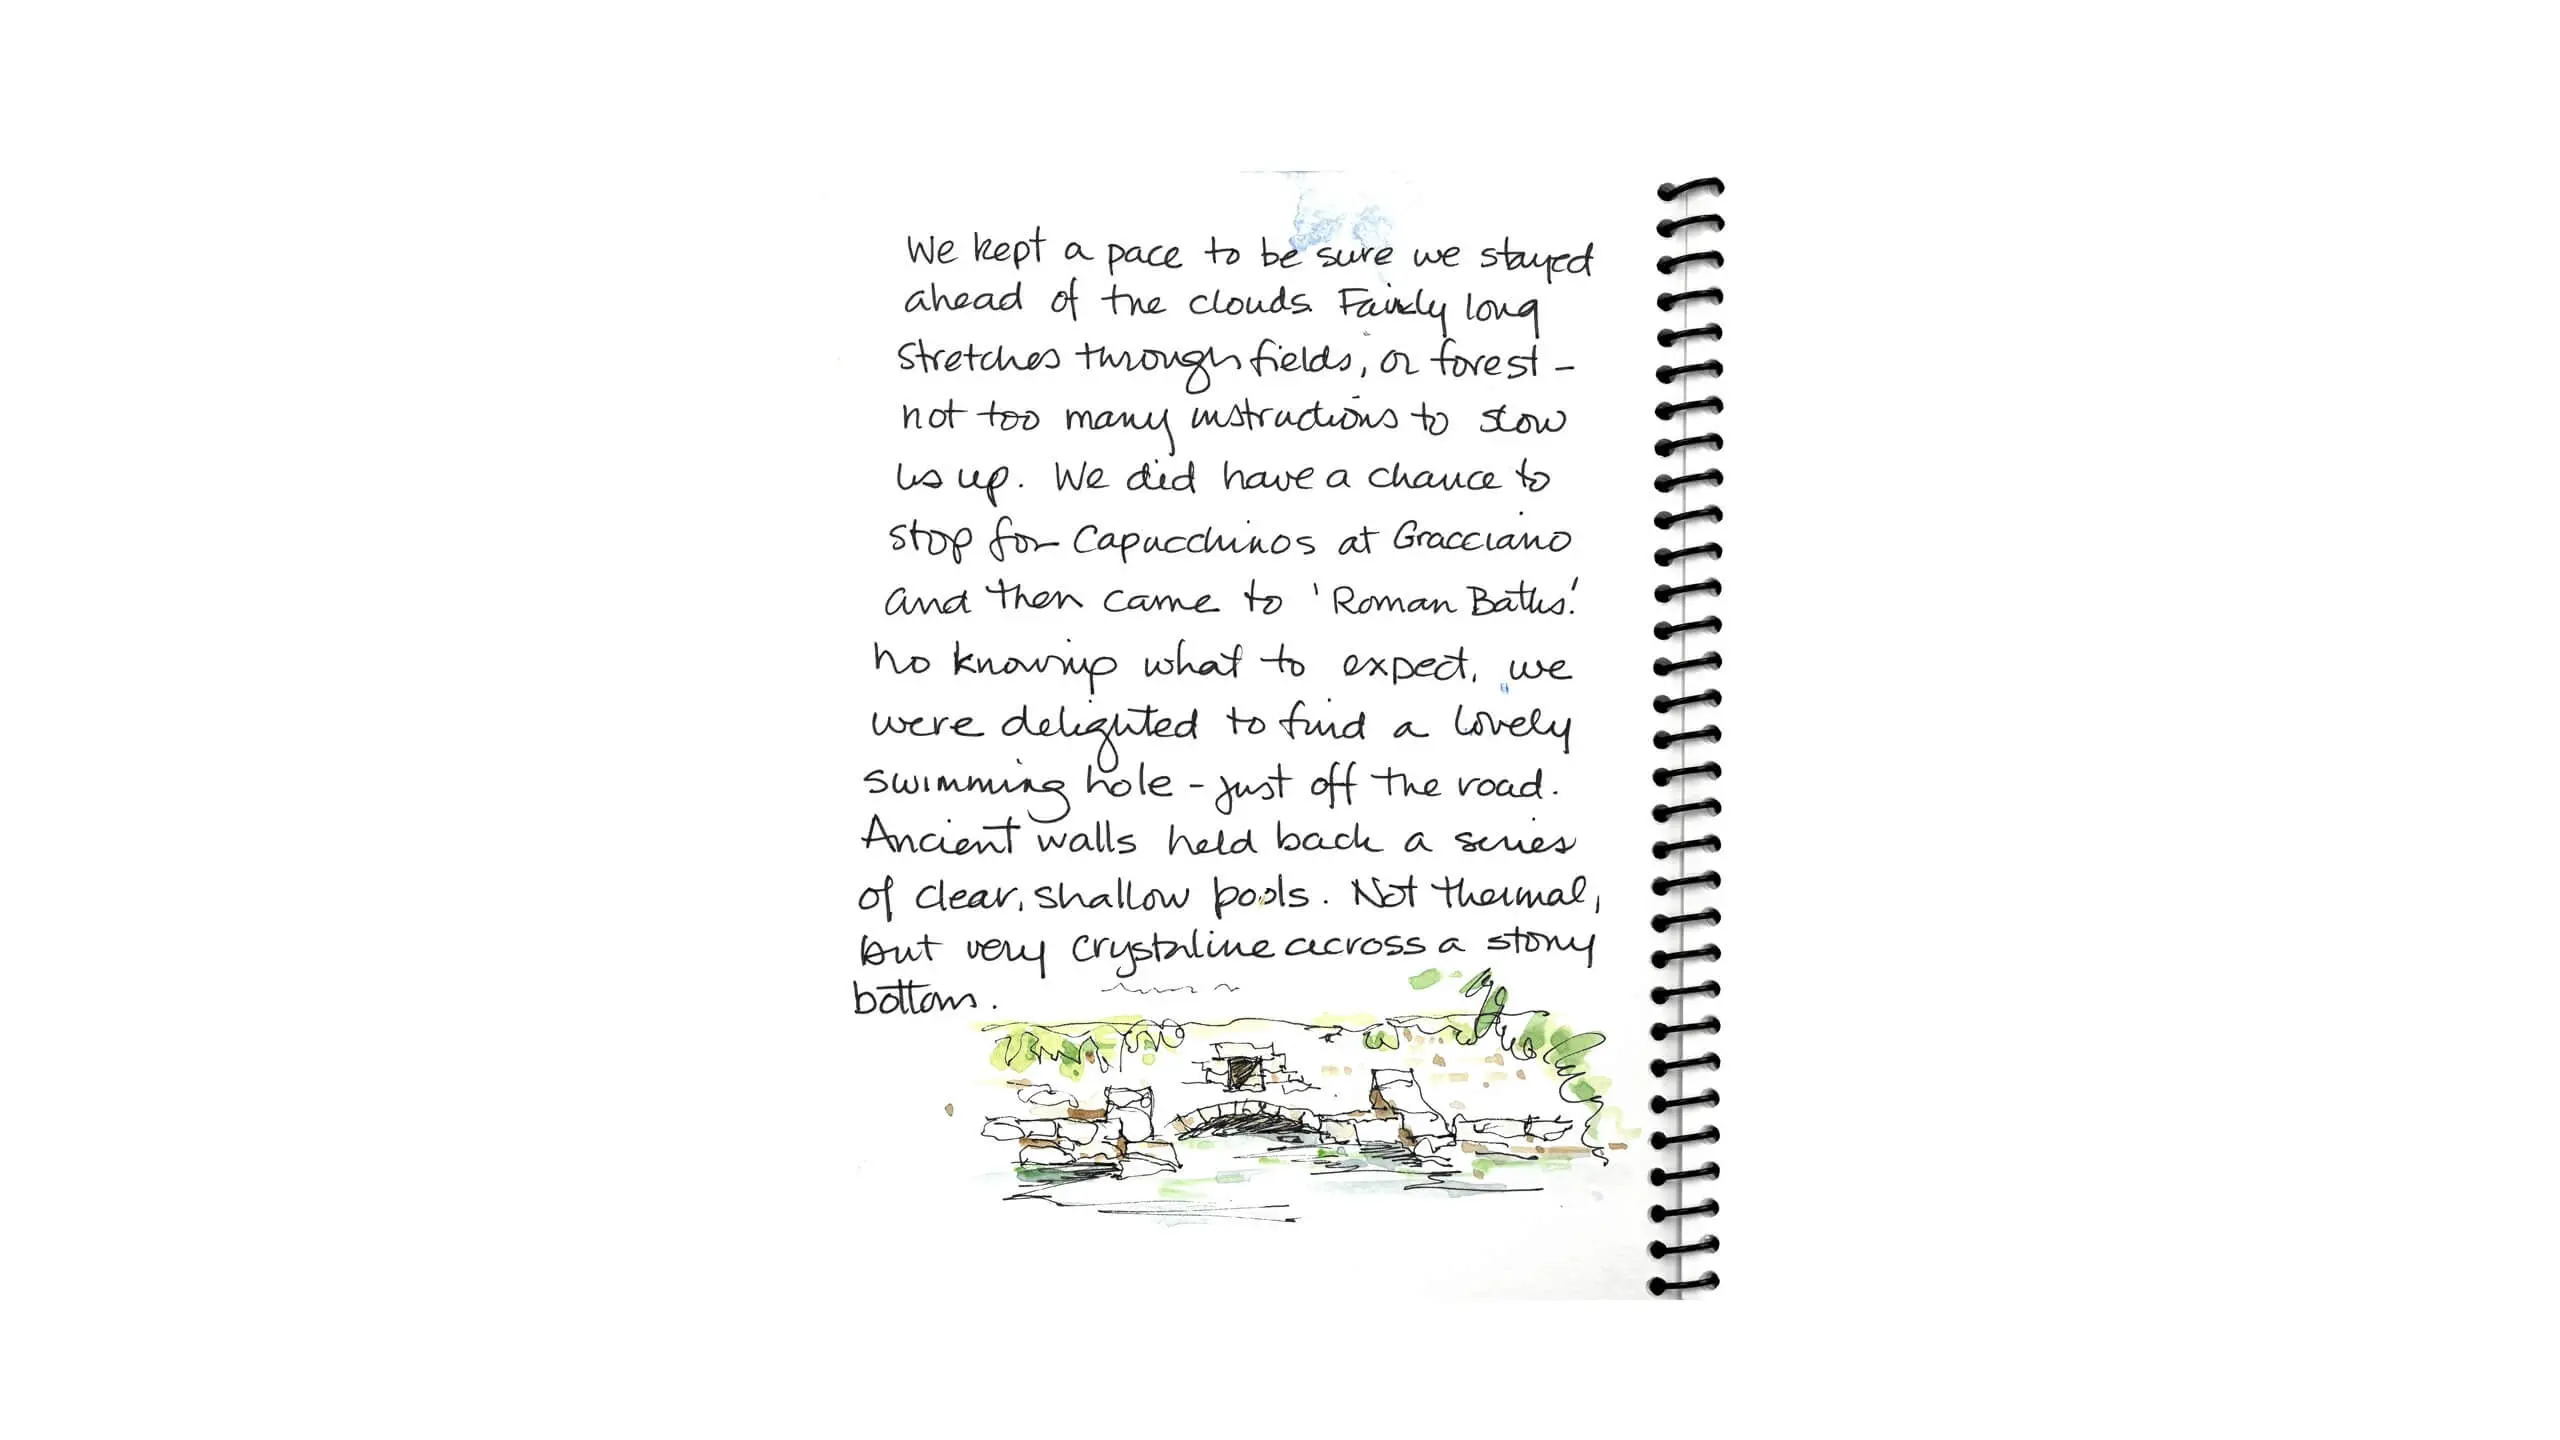 We kept a pace to be sure we stayed
ahead of the clouds. Fairly long
stretches through fields, or forest -
not too many instructions to slow
us up. We did have a chance to
stop for Capucchinos at Gracciano
and then came to 'Roman Baths.'
no knowing what to expect, we
were delighted to find a lovely
swimming hole - just off the road.
Ancient walls held back a series
of clear, shallow pools. Not thermal,
but very crystaline across a stony
bottom.